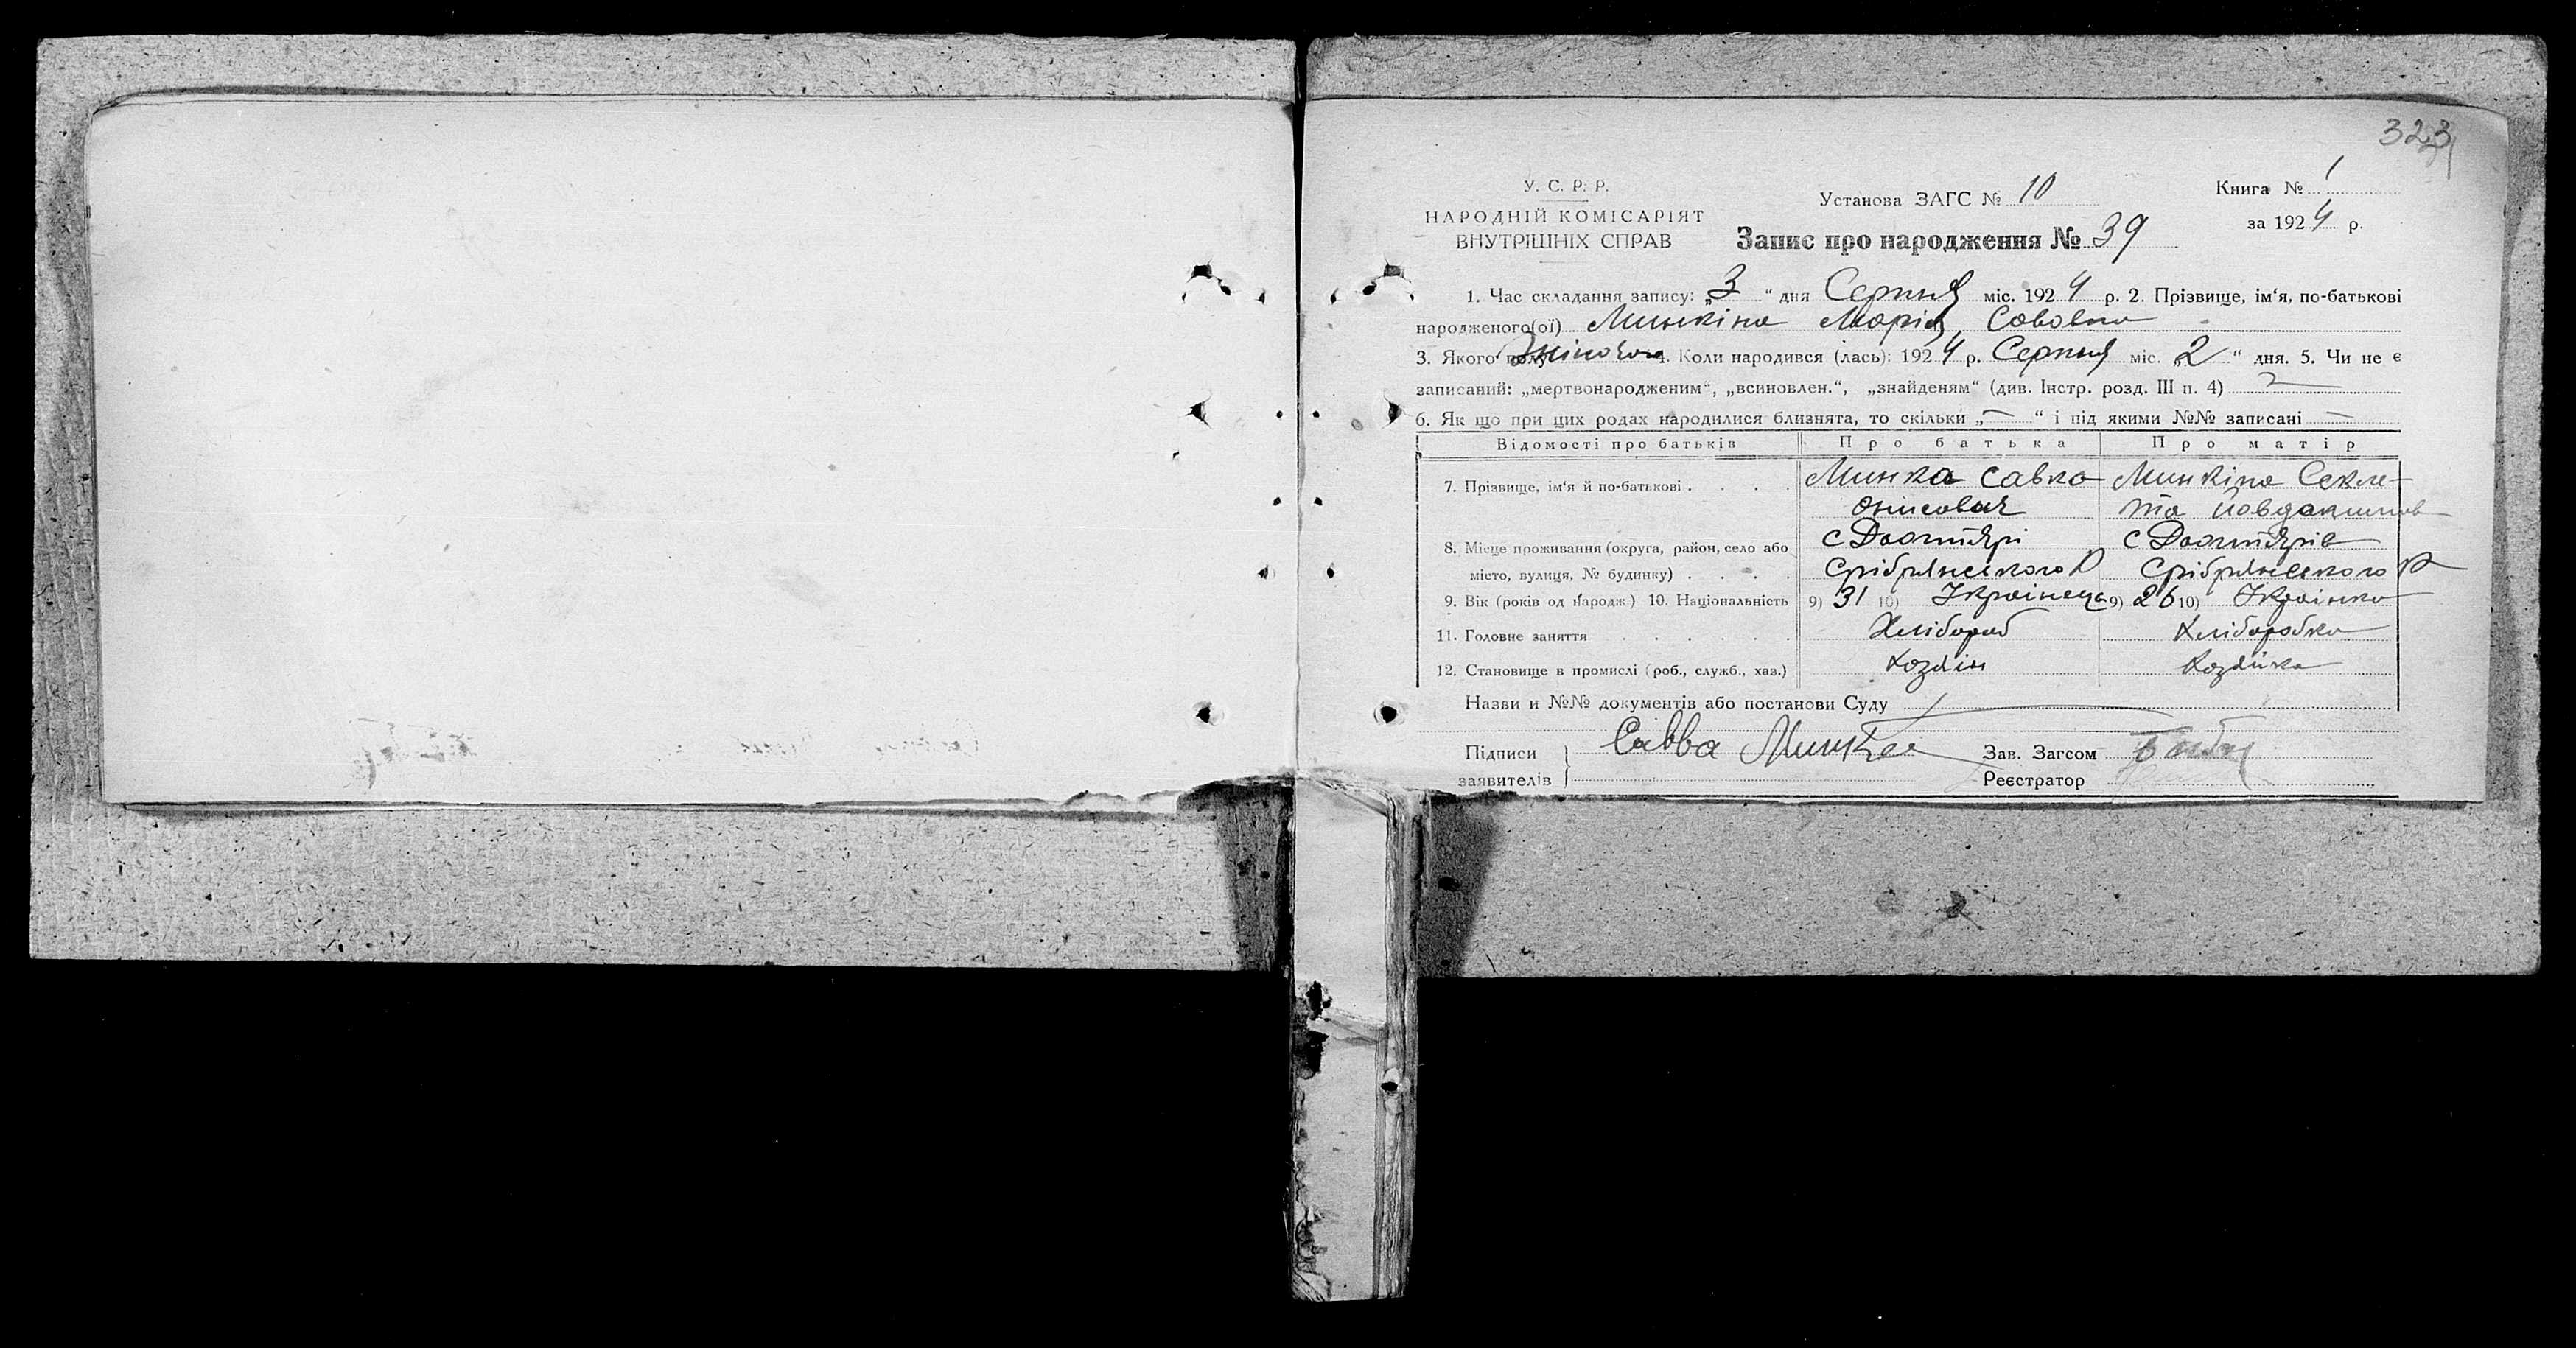 323
У. С. Р. Р.
НАРОДНІЙ КОМІСАРІЯТ
ВНУТРІШНІХ СПРАВ
Установа ЗАГС № 10
Книга № 1
за 1924 р.
Запис про народження № 39
1. Час складання запису: „3“ дня Серпня міс. 1924 р. 2. Прізвище, ім‘я, по-батькові
народженого(ої) Минкіна Марія Савовна
3. Якого полу 4. Коли народився (лась): 1924 р. Серпня міс. „2“ дня. 5. Чи не є
записаний: „мертвонародженим“, „всиновлен.“, „знайденям“ (див. Інстр. розд. III п. 4)
6. Як що при цих родах народилися близнята, то скільки „—“ і під якими №№ записані —
Відомості про батьків Про батька Про матір
7. Прізвище, ім‘я й по-батькові . . . . Минка Савка Минкіна Секле-
Онисович та Йовдакимов
8. Місце проживання (округа, район, село або с Дігтярі с Дігтярів
місто, вулиця, № будинку) . . . . Срібрянського Р Срібрянського Р
9. Вік (років од народж.) 10. Національність 9) 31 10) Українець 9) 26 10) Українка
11. Головне заняття . . . . . . Хлібороб Хліборобка
12. Становище в промислі (роб., служб., хаз.) Хозяін Хозяйка
Назви и №№ документів або постанови Суду
Підписи Савва Минка Зав. Загсом
заявителів Реєстратор